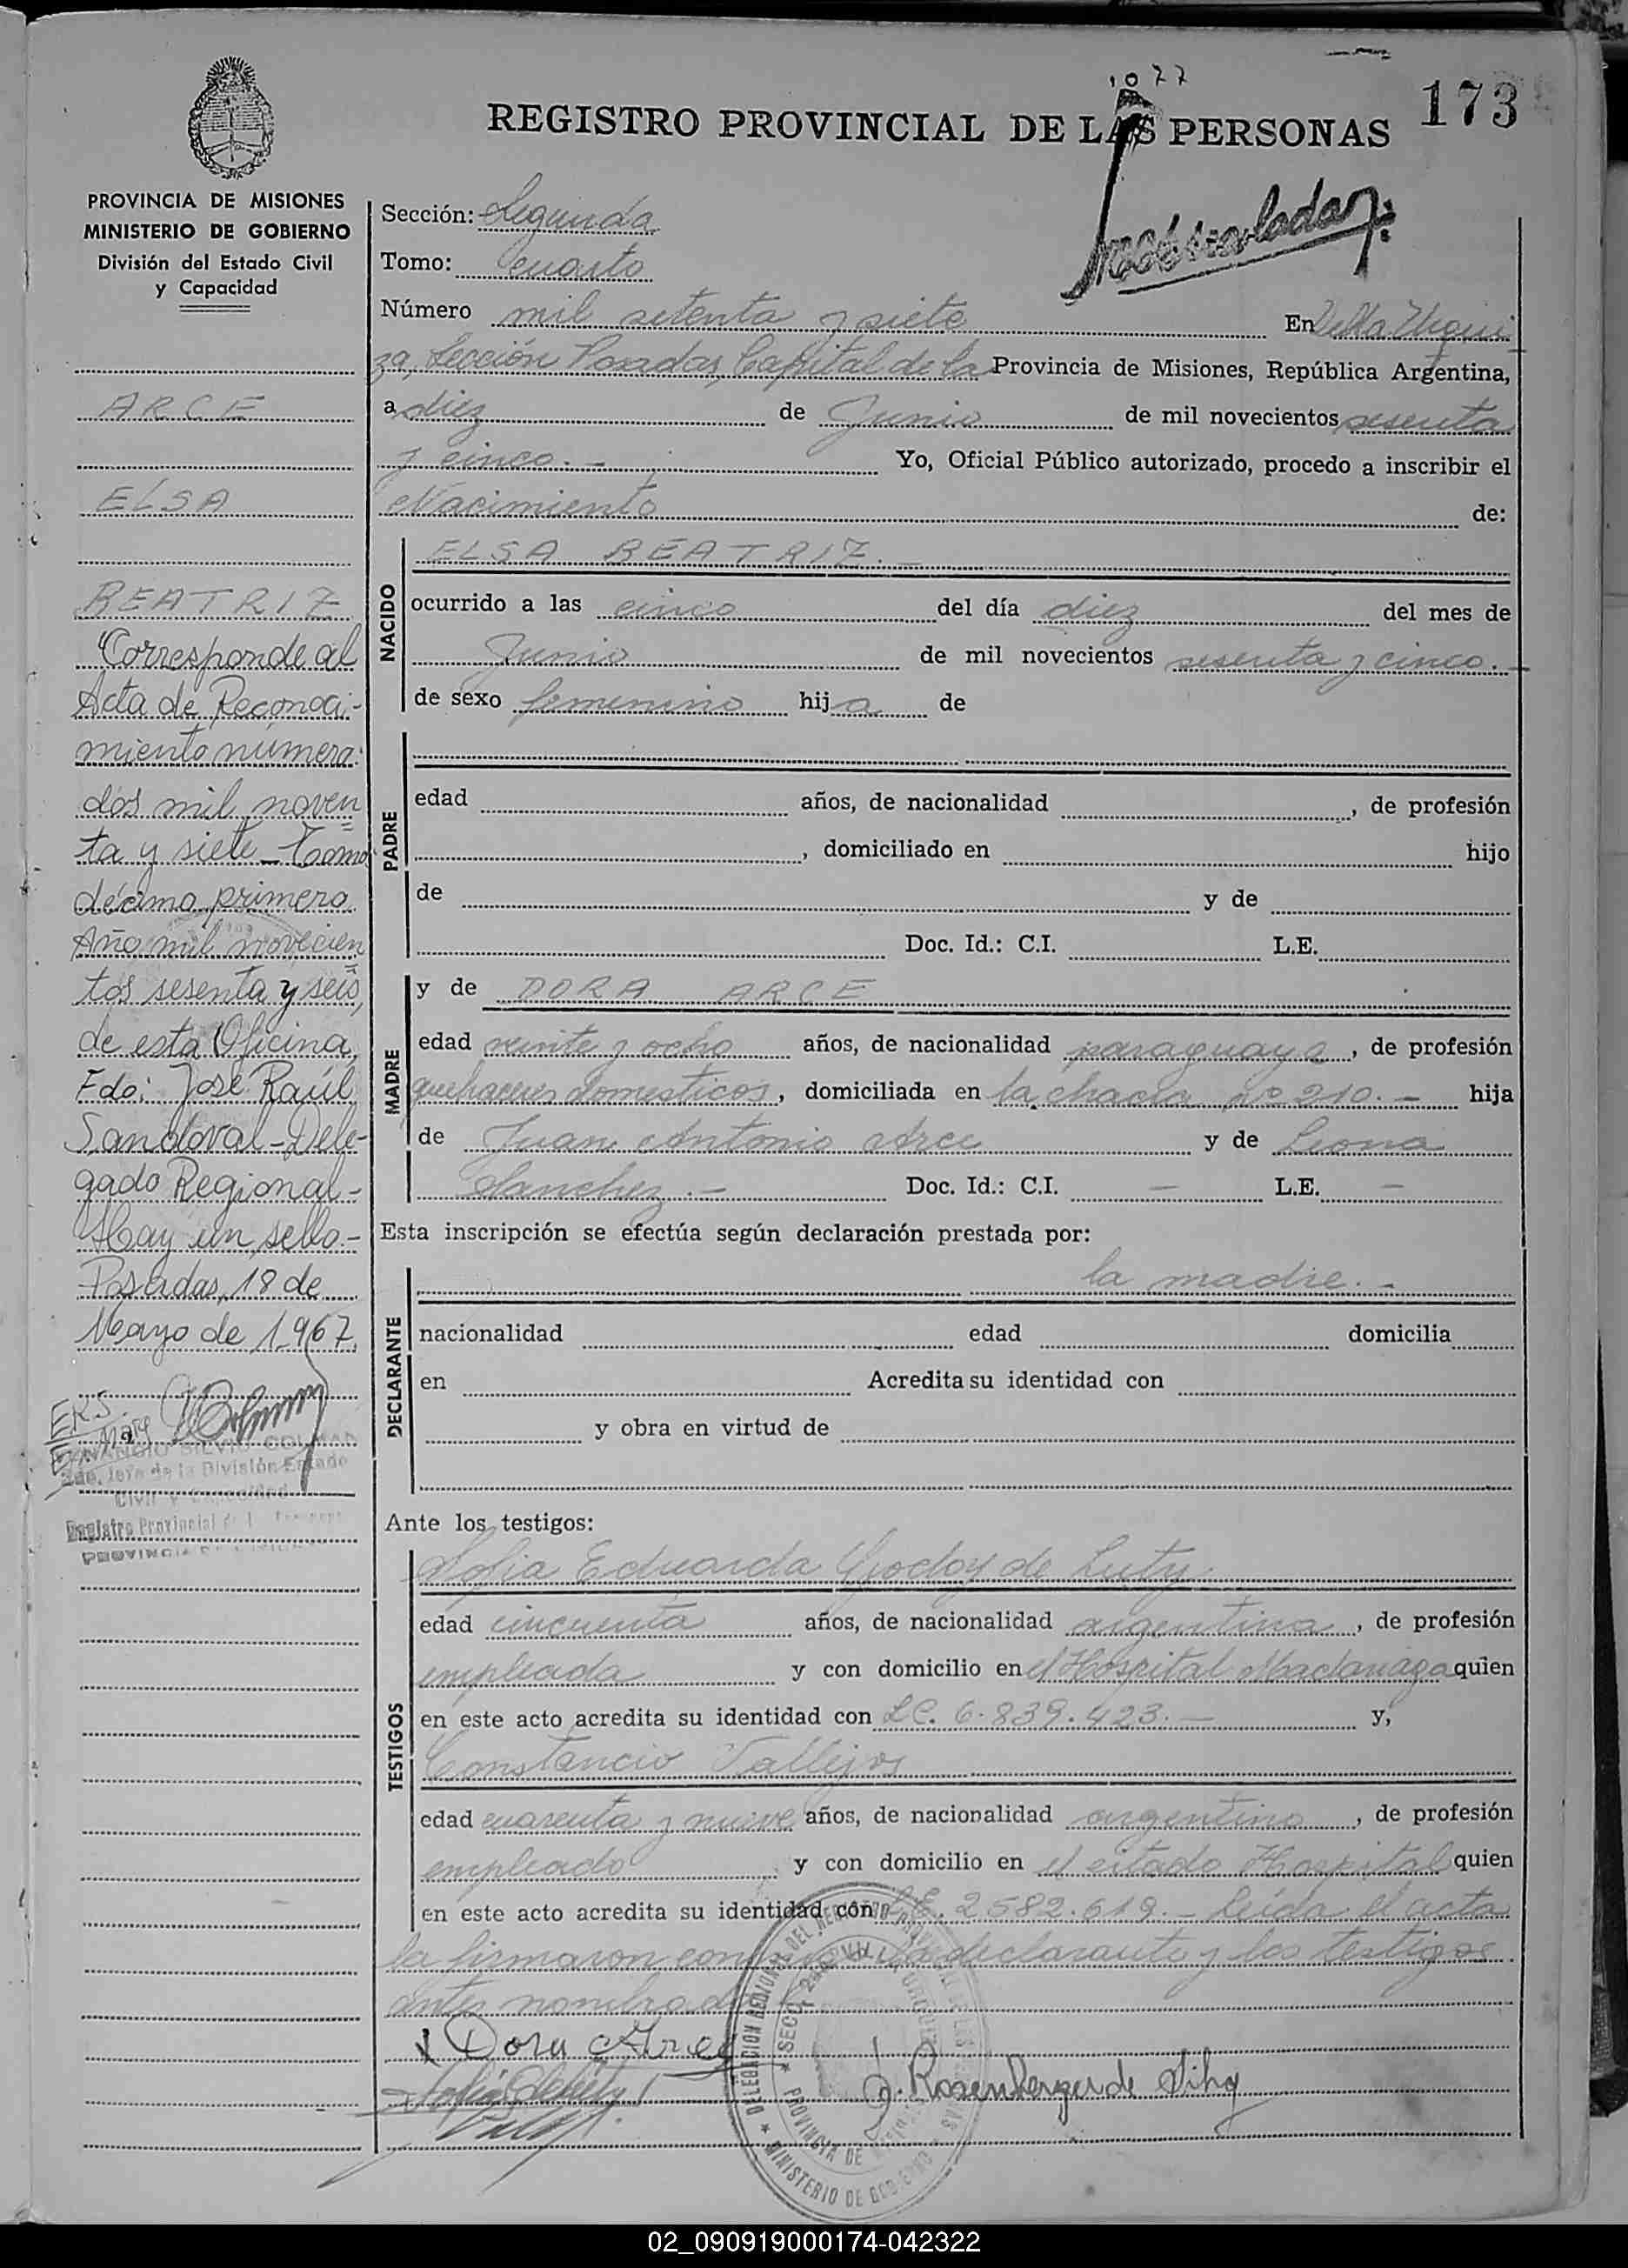 1077
173
REGISTRO PROVINCIAL DE LAS PERSONAS
PROVINCIA DE MISIONES
MINISTERIO DE GOBIERNO
División del Estado Civil
y Capacidad
ARCE
ELSA
BEATRIZ
Corresponde al
Acta de Reconoci-
miento número:
dos mil noven
ta y siete - Tomo
décimo primero
Año mil novecien
tos sesenta y seis,
de esta Oficina,
Fdo: José Raúl
Sandoval - Dele-
gado Regional -
Hay un sello.-
Posadas, 18 de
Mayo de 1.967
2do. Jefe de la División Estado
Civil y Capacidad
Registro Provincial de l
PROVINCIA
Sección: Segunda
Tomo: cuarto
Número mil setenta y siete En Villa Urqui
za, Sección Posadas, Capital de la Provincia de Misiones, República Argentina,
a diez de Junio de mil novecientos sesenta
y cinco.- Yo, Oficial Público autorizado, procedo a inscribir el
Nacimiento de:
NACIDO
ELSA BEATRIZ.-
ocurrido a las cinco del día diez del mes de
Junio de mil novecientos sesenta y cinco.-
de sexo femenino hija de
PADRE
edad años, de nacionalidad , de profesión
, domiciliado en hijo
de y de
Doc. Id.: C.I. L.E.
MADRE
y de DORA ARCE
edad veinte y ocho años, de nacionalidad paraguaya, de profesión
quehaceres domesticos, domiciliada en la chacra nº 210.- hija
de Juan Antonio Arce y de Leona
Sanchez.- Doc. Id.: C.I. - L.E. -
Esta inscripción se efectúa según declaración prestada por:
DECLARANTE
la madre.-
nacionalidad edad domicilia
en Acredita su identidad con
y obra en virtud de
Ante los testigos:
TESTIGOS
Sofia Eduarda Godoy de Luty
edad cincuenta años, de nacionalidad argentina, de profesión
empleada y con domicilio en el Hospital Madariaga quien
en este acto acredita su identidad con LC. 6.839.423.- y,
Constancio Vallejos
edad cuarenta y nueve años, de nacionalidad argentino, de profesión
empleado y con domicilio en el citado Hospital quien
en este acto acredita su identidad con L.E. 2582.619.- Leída el acta
la firmaron la declarante y los testigos
antes
Dora Arce
Rosenberger de
DELEGACION REGIONAL DEL REGISTRO PROVINCIAL DE LAS PERSONAS
MINISTERIO DE GOBIERNO
PROVINCIA DE
02_090919000174-042322